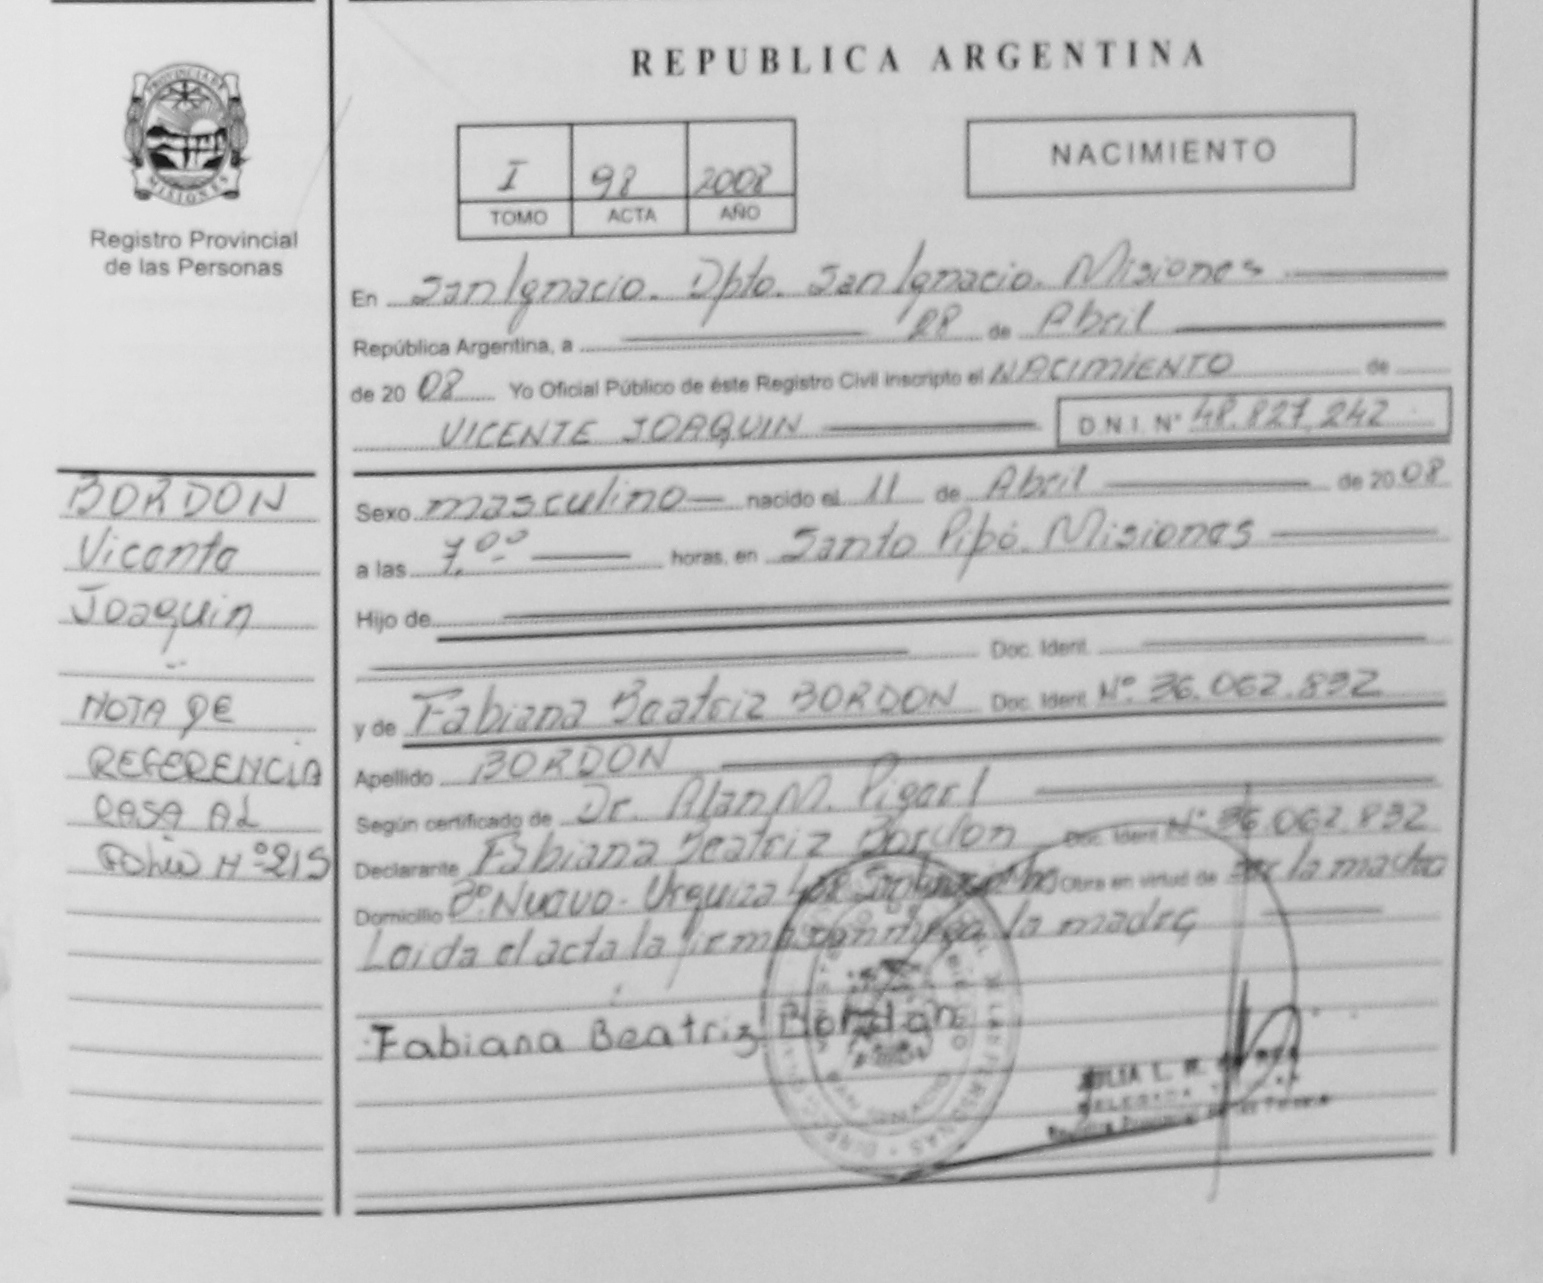 REPUBLICA ARGENTINA
PROVINCIA DE
MISIONES
Registro Provincial
de las Personas
I 98 2008
TOMO ACTA AÑO
NACIMIENTO
En San Ignacio. Dpto. San Ignacio. Misiones
República Argentina, a 28 de Abril
de 20 08 Yo Oficial Público de éste Registro Civil inscripto el NACIMIENTO de
VICENTE JOAQUIN D.N.I. N° 48.827.242
BORDON
Vicente
Joaquin
NOTA DE
REFERENCIA
PASA AL
FOLIO N° 215
Sexo masculino nacido el 11 de Abril de 20 08
a las 7.00 horas, en Santo Pipó. Misiones
Hijo de
Doc. Ident.
y de Fabiana Beatriz BORDON Doc. Ident. N° 36.062.832
Apellido BORDON
Según certificado de Dr. Alan M.
Declarante Fabiana Beatriz Bordon Doc. Ident. N° 36.062.832
Domicilio B° Nuevo. Urquiza Obra en virtud de ser la madre
Leida el acta la firma conmigo la madre
Fabiana Beatriz Bordon
JULIA L.
DELEGADA
Registro Provincial de las Personas